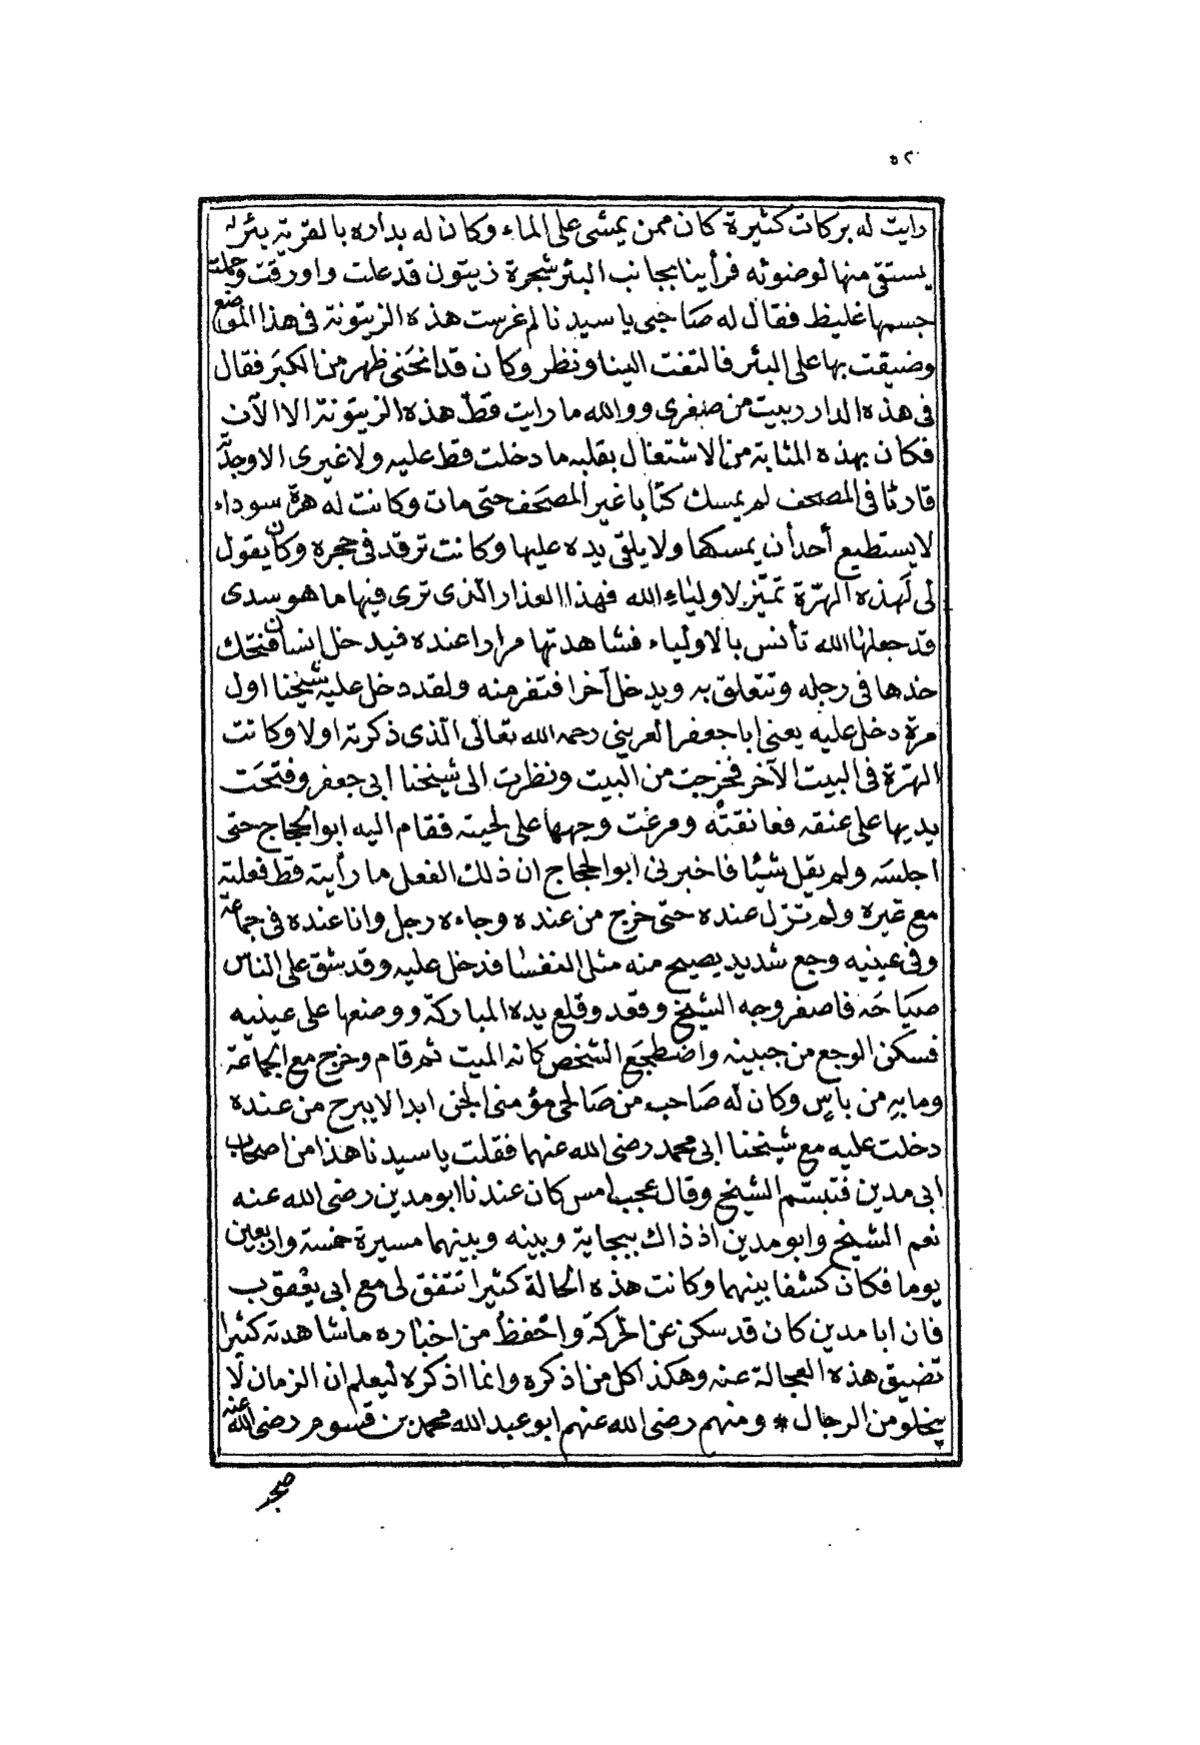 ٥٢
رايت له بركات كثيرة كان ممن يمشى على الماء وكان له بداره بالقرية بئر له
يستقى منها لوضوئه فرأينا بجانب البئر شجرة زيتون قد علت واورقت وحملت
جسمها غليظ فقال له صاحبى يا سيدنا لم غرست هذه الزيتونة فى هذا الموضع
وضيقت بها على البئر فالتفت الينا ونظر وكان قد انحنى ظهر من الكبر فقال
فى هذه الدار ربيت من صغرى ووالله ما رايت قط هذه الزيتونة الا الآن
فكان بهذه المثابة من الاشتغال بقلبه ما دخلت قط عليه ولا غيرى الا وجدته
قارئا فى المصحف لم يمسك كتابا غير المصحف حتى مات وكانت له هرة سوداء
لا يستطيع أحدأن يمسكها ولا يلقى يده عليها وكانت ترقد فى حجره وكان يقول
لى لهذه الهرّة تمييز لاولياء الله فهذا العذار الذى ترى فيها ما هو سدى
قد جعلها الله تأنس بالاولياء فشاهدتها مرارا عنده فيدخل إنسان فتحك
خدها فى رجله وتتعلق به ويدخل آخر افتفر منه ولقد دخل عليه شيخنا اول
مرة دخل عليه يعنى ابا جعفر العرينى رحمه الله تعالى الذى ذكرته اولا وكانت
الهرّة فى البيت الآخر فخرجت من البيت ونظرت الى شيخنا ابى جعفر وفتحت
يديها على عنقه فعانقته ومرغت وجهها على لحيته فقام اليه ابو الحجاج حتى
اجلسه ولم يقل شيئا فاخبرنى ابو الحجاج ان ذلك الفعل ما رأيته قط فعلته
مع غيره ولم تزل عنده حتى خرج من عنده وجاءه رجل وانا عنده فى جماعة
وفى عينيه وجع شديد يصيح منه مثل النفسا فدخل عليه وقد شق على الناس
صياحه فاصفر وجه الشيخ وقعد وقلع يده المباركة ووضعها على عينيه
فسكن الوجع من حينه واضطجع الشخص كانه الميت ثم قام وخرج مع الجماعة
وما به من بأس وكان له صاحب من صالحى مؤمنى الجن ابدا لا يبرح من عنده
دخلت عليه مع شيخنا ابى محمد رضى الله عنهما فقلت يا سيدنا هذا من اصحاب
ابى مدين فتبسّم الشيخ وقال عجب امس كان عندنا ابو مدين رضى الله عنه
نعم الشيخ وابو مدين اذ ذاك ببجاية وبينه وبينهما مسيرة خمسة واربعين
يوما فكان كشفا بينهما وكانت هذه الحالة كثيرا تتفق لى مع ابى يعقوب
فان ابا مدين كان قد سكن عن الحركة واحفظ من اخباره ما شاهدته كثيرا
تضيق هذه العجالة عنه وهكذا كل من اذكره وانما اذكره ليعلم ان الزمان لا
يخلو من الرجال * ومنهم رضى الله عنهم ابو عبد الله محمد بن قسوم رضى الله عنه